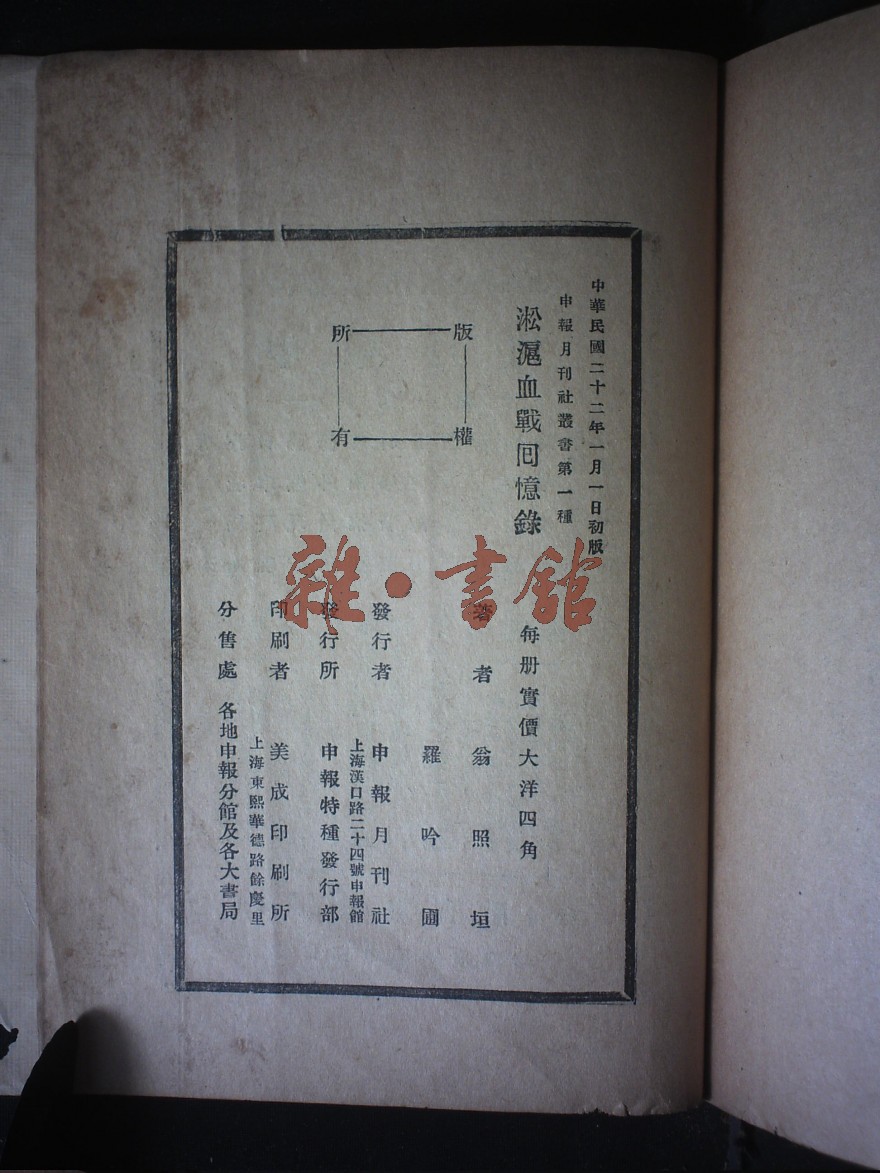 中華民國二十二年一月一日初版
申報月刊社叢書第一種
淞滬血戰囘憶錄
每册實價大洋四角
著者 翁照垣
羅吟圃
發行者 申報月刊社
上海漢口路二十四號申報館
發行所 申報特種發行部
印刷者 美成印刷所
上海東熙華德路餘慶里
分售處 各地申報分館及各大書局
版權所有
雜·書館